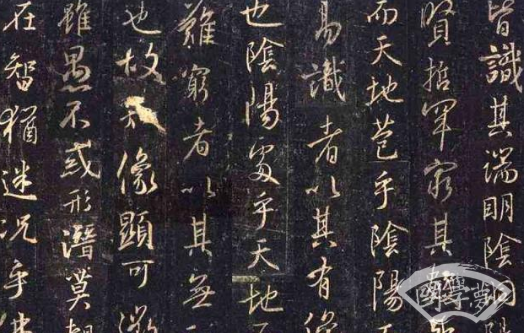 皆識其端明陰洞
賢哲罕窮其
而天地苞乎陰陽
易識者以其有像
也陰陽處乎天地而
難窮者以其無
也故知像顯可徵
雖愚不惑形潛莫
在智猶迷況乎佛
國學夢